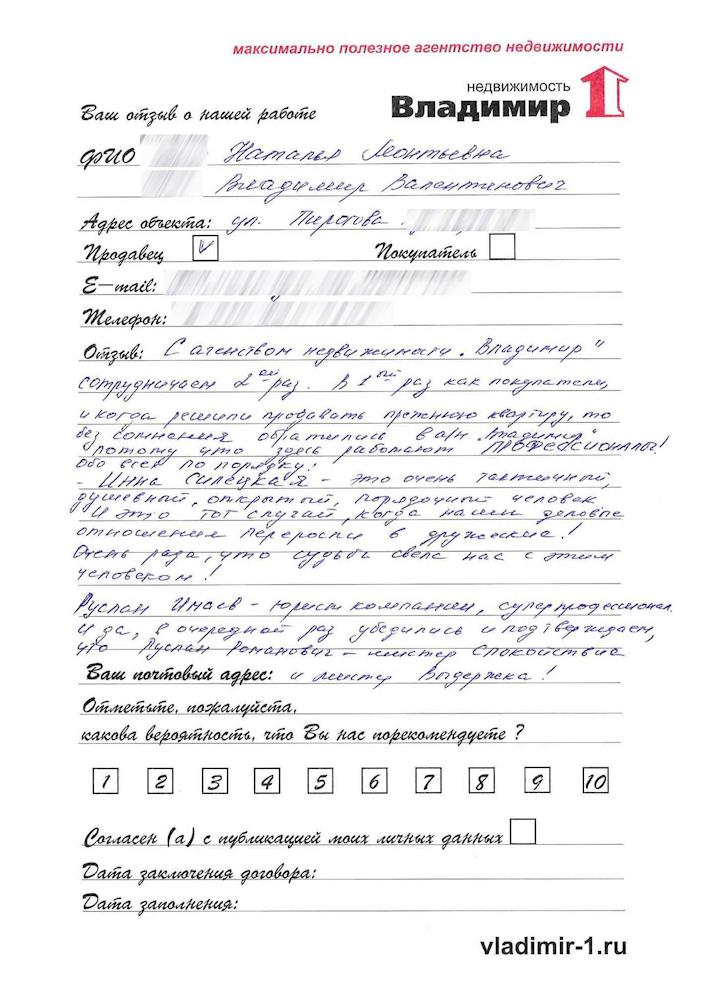 максимально полезное агентство недвижимости
недвижимость
Владимир 1
Ваш отзыв о нашей работе
ФИО Наталья Леонтьевна
Владимир Валентинович
Адрес объекта: ул. Пирогова
Продавец V Покупатель
E-mail:
Телефон:
Отзыв: С агенством недвижимости „Владимир"
сотрудничаем 2ой раз. В 1ый раз как покупатели,
и когда решили продавать прежнюю квартиру, то
без сомнения обратились в а/н „Владимир"
потому что здесь работают ПРОФЕССИОНАЛЫ!
Обо всем по порядку:
- Инна Силецкая - это очень тактичный,
душевный, открытый, порядочный человек
И это тот случай, когда наши деловые
отношения переросли в дружеские!
Очень рада, что судьба свела нас с этим
человеком!
Руслан Инаев - юрист компании, суперпрофессионал.
И да, в очередной раз убедились и подтверждаем,
что Руслан Романович - мистер Спокойствие
Ваш почтовый адрес: и мистер Выдержка!
Отметьте, пожалуйста,
какова вероятность, что Вы нас порекомендуете?
1 2 3 4 5 6 7 8 9 10
Согласен (а) с публикацией моих личных данных
Дата заключения договора:
Дата заполнения:
vladimir-1.ru